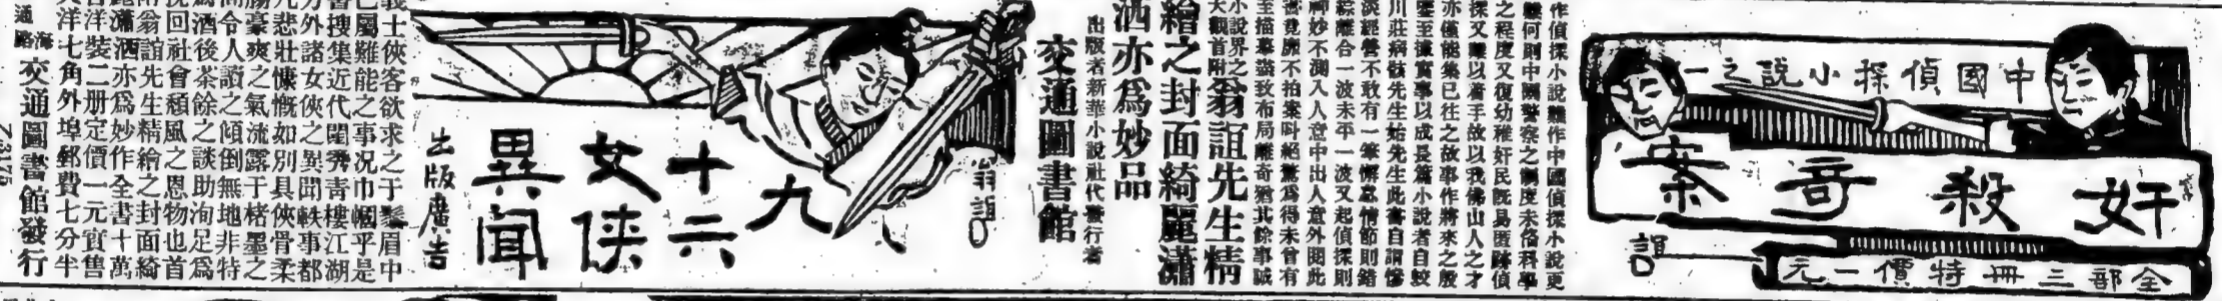 中國偵探小說之一
奸殺奇案
全部三冊特價一元
誼
作偵探小說難作中國偵探小說更
難何則中國警察之制度未備科學
之程度又復幼稚奸民既易匿跡偵
探又難以著手故以我佛山人之才
亦僅能集已往之故事作將來之殷
鑒至據實事以成長篇小說者自鮫
川莊病骸先生始先生此書自謂慘
淡經營不敢有一筆懈怠情節則錯
綜離合一波未平一波又起偵探則
神妙不測入人意中出人意外閱此
書竟原不拍案叫絕驚爲得未曾有
至描摹盡致布局離奇猶其餘事誠
小說界之
大觀首附
翁誼先生精
繪之封面綺麗瀟
洒亦爲妙品
出版者新華小說社代發行者
交通圖書館
翁誼
九十六女俠異聞
出版廣告
義士俠客欲求之于鬚眉中
已屬難能之事况巾幗乎是
書搜集近代閨秀青樓江湖
方外諸女俠之異聞軼事都
凡悲壯慷慨如別具俠骨柔
腸豪爽之氣流露于楮墨之
間令人讀之傾倒無地非特
爲酒後茶餘之談助洵足爲
挽回社會頹風之恩物也首
附翁誼先生精繪之封面綺
麗瀟洒亦爲妙作全書十萬
言洋裝二册定價一元實售
大洋七角外埠郵費七分半
海通路交通圖書館發行